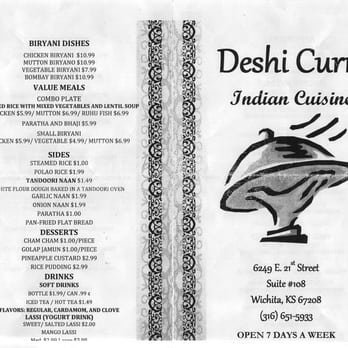 BIRYANI DISHES
CHICKEN BIRYANI $10.99
MUTTON BIRYANO $10.99
VEGETABLE BIRYANI $7.99
BOMBAY BIRYANI $10.99
VALUE MEALS
COMBO PLATE
ED RICE WITH MIXED VEGETABLES AND LENTIL SOUP
CKEN $5.99/ MUTTON $6.99/ RUHU FISH $6.99
PARATHA AND BHAJI $5.99
SMALL BIRYANI
CKEN $5.99/ VEGETABLE $4.99/ MUTTON $6.99
SIDES
STEAMED RICE $1.00
POLAO RICE $1.99
TANDOORI NAAN $1.49
ITE FLOUR DOUGH BAKED IN A TANDOORI OVEN
GARLIC NAAN $1.99
ONION NAAN $1.99
PARATHA $1.00
PAN-FRIED FLAT BREAD
DESSERTS
CHAM CHAM $1.00/PIECE
GOLAP JAMUN $1.00/PIECE
PINEAPPLE CUSTARD $2.99
RICE PUDDING $2.99
DRINKS
SOFT DRINKS
BOTTLE $1.99/ CAN .99 ¢
ICED TEA / HOT TEA $1.49
FLAVORS: REGULAR, CARDAMOM, AND CLOVE
LASSI (YOGURT DRINK)
SWEET/ SALTED LASSI $2.00
MANGO LASSI
Deshi Curr
Indian Cuisine
6249 E. 21st Street
Suite #108
Wichita, KS 67208
(316) 651-5933
OPEN 7 DAYS A WEEK